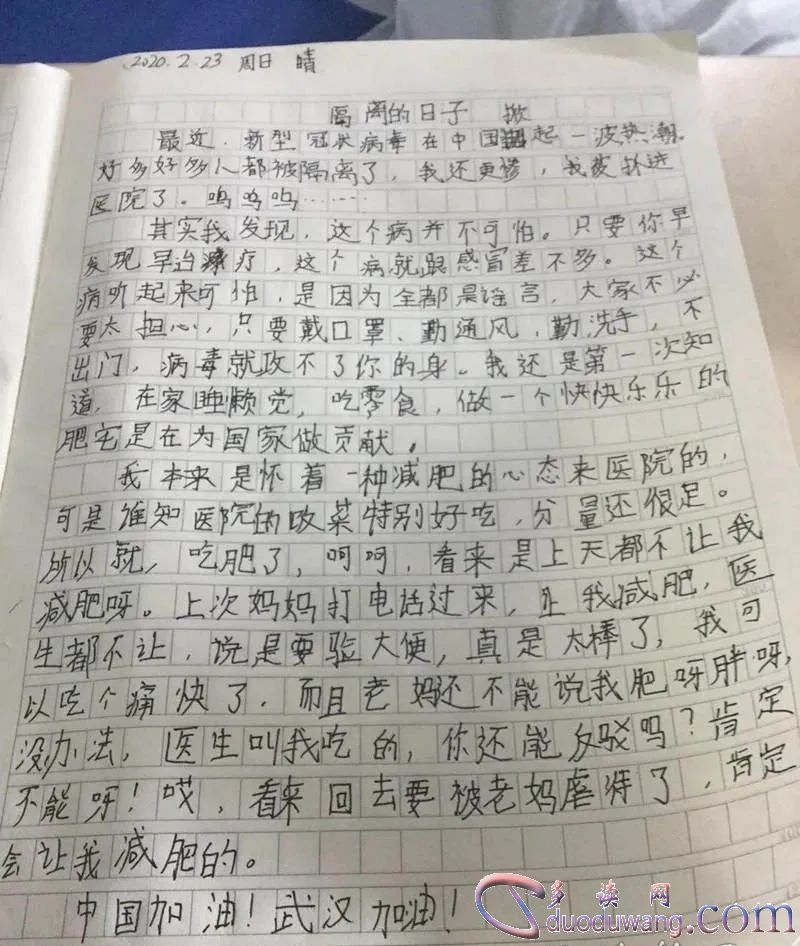 2020.2.23 周日 晴
隔离的日子 掀
最近，新型冠状病毒在中国起一波热潮。
好多好多人都被隔离了，我还更惨，我被抓进
医院了。呜呜呜……
其实我发现，这个病并不可怕。只要你早
发现早治疗，这个病就跟感冒差不多。这个
病听起来可怕，是因为全都是谣言，大家不必
要太担心，只要戴口罩、勤通风，勤洗手，不
出门，病毒就攻不了你的身。我还是第一次知
道，在家睡懒觉，吃零食，做一个快快乐乐的
肥宅是在为国家做贡献。
我本来是怀着一种减肥的心态来医院的，
可是谁知医院的饭菜特别好吃，分量还很足。
所以就，吃肥了，呵呵，看来是上天都不让我
减肥呀。上次妈妈打电话过来，让我减肥，医
生都不让，说是要验大便，真是太棒了，我可
以吃个痛快了．而且老妈还不能说我肥呀胖呀，
没办法，医生叫我吃的，你还能反驳吗？肯定
不能呀！哎，看来回去要被老妈虐待了，肯定
会让我减肥的。
中国加油！武汉加油！
多读网
duoduwang.com